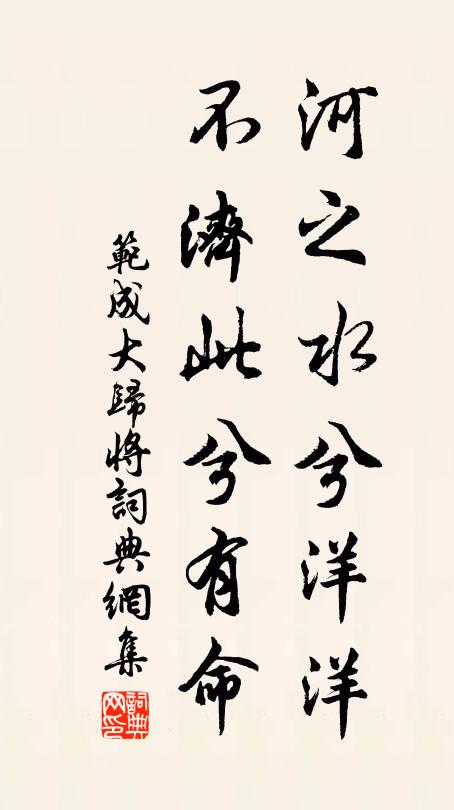 河之水兮洋洋
不濟此兮有命
範成大歸將詞典網集
詞典
网印